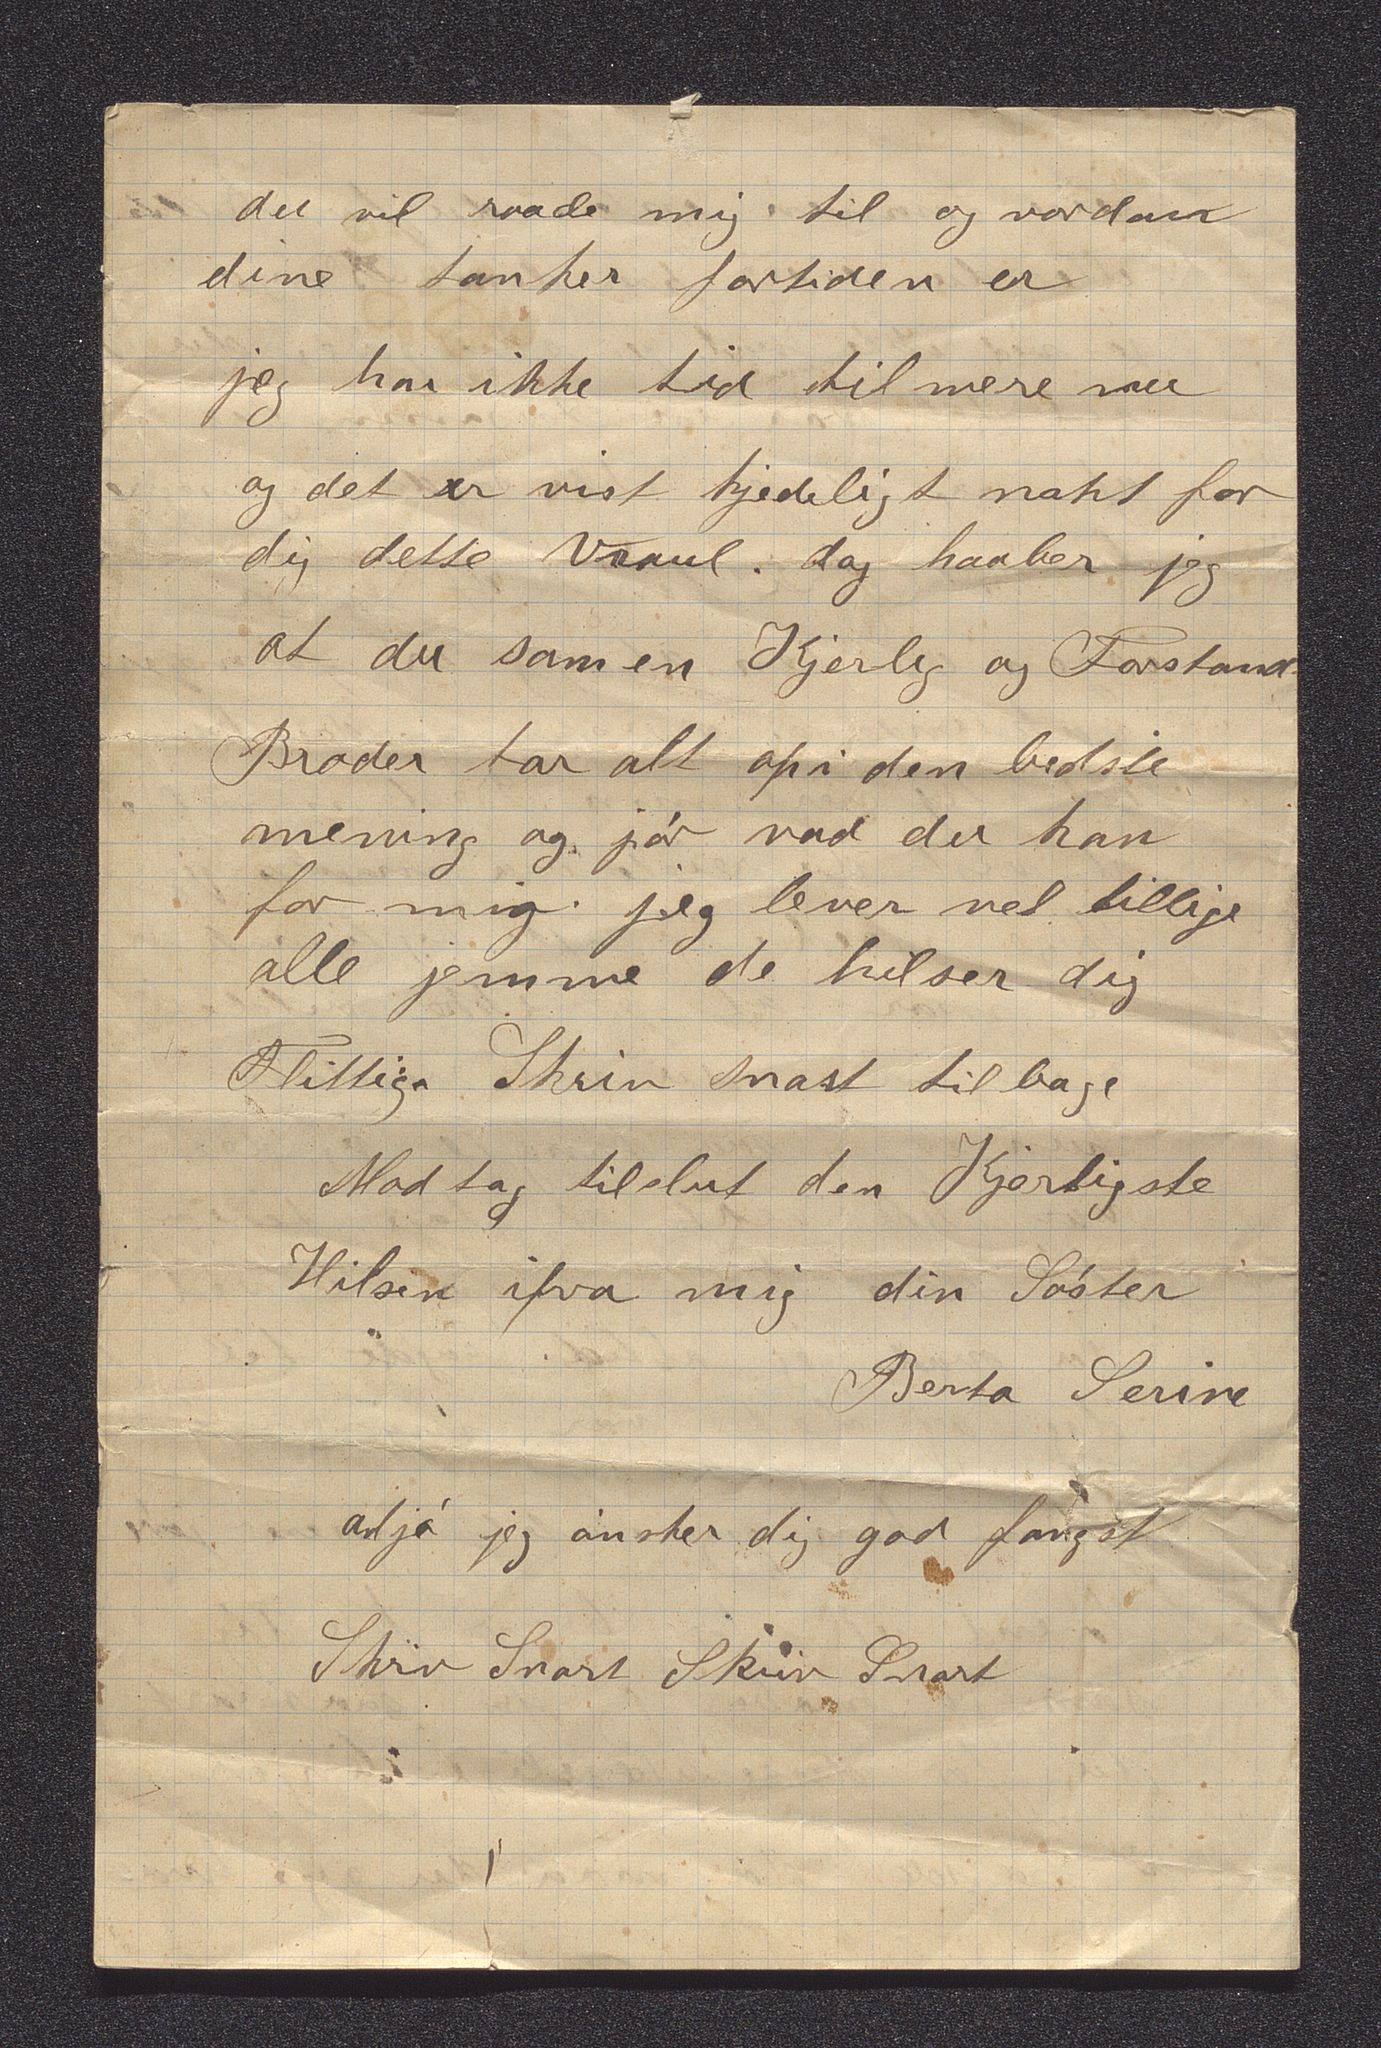 du vil raade mig til og vordan
dine tanker fortiden er
jeg har ikke tid til mere nu
og det er vist kjedeligt nokt for
dig dette Vraul. dog haaber jeg
at du som en Kjerlig og Forstand
Broder tar alt op i den bedste
mening og jør vad du kan
for mig. jeg lever vel tillige
alle jemme de hilser dig
Flittiga Skriv snast tilbage
Modtag tilslut den Kjerligste
Hilsen ifra mig din Søster
Berta Serine
adjø jeg ønsker dig god fangst
Skriv Snart Skriv Snart